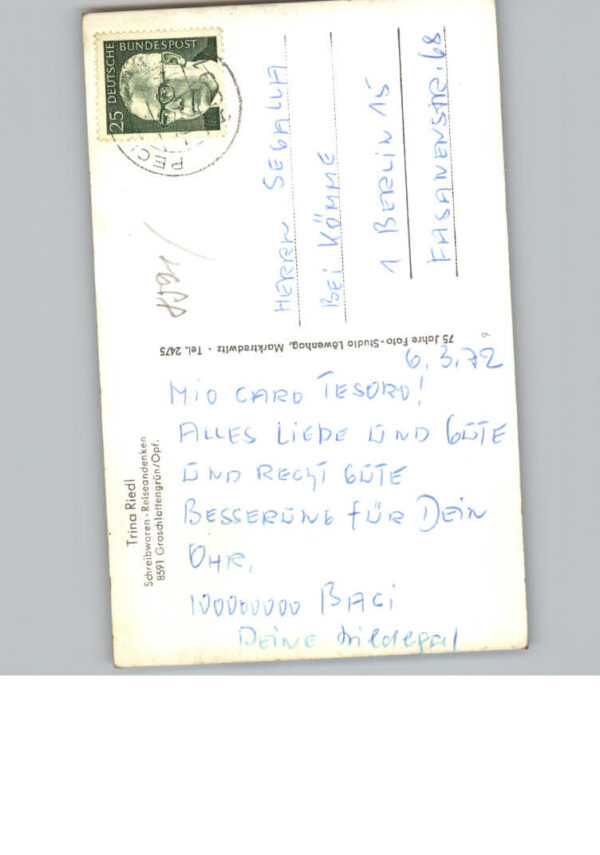 DEUTSCHE BUNDESPOST
25
8591
HERRN SEGALLA
BEI KÖMME
1 BERLIN 15
FASANENSTR. 68
75 Jahre Foto-Studio Löwenhag, Marktredwitz · Tel. 2475
6.3.72
MIO CARO TESORO!
ALLES LIEBE UND GUTE
UND RECHT GUTE
BESSERUNG FÜR DEIN
OHR,
100000000 BACI
DEINE Hildegard
Trina Riedl
Schreibwaren - Reiseandenken
8591 Groschlattengrün/Opf.